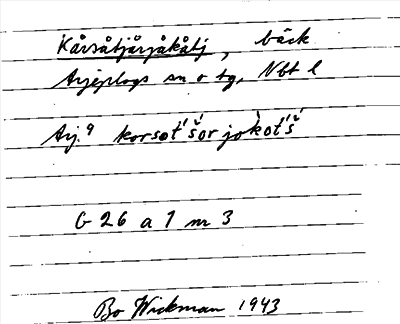 Kårsåtjårjåkåtj, bäck
Arjeplogs sn o tg, Nbt l
Arj. 9 korsot'šor jo̍kot'š
G 26 a 1 m 3
Bo Wickman 1943